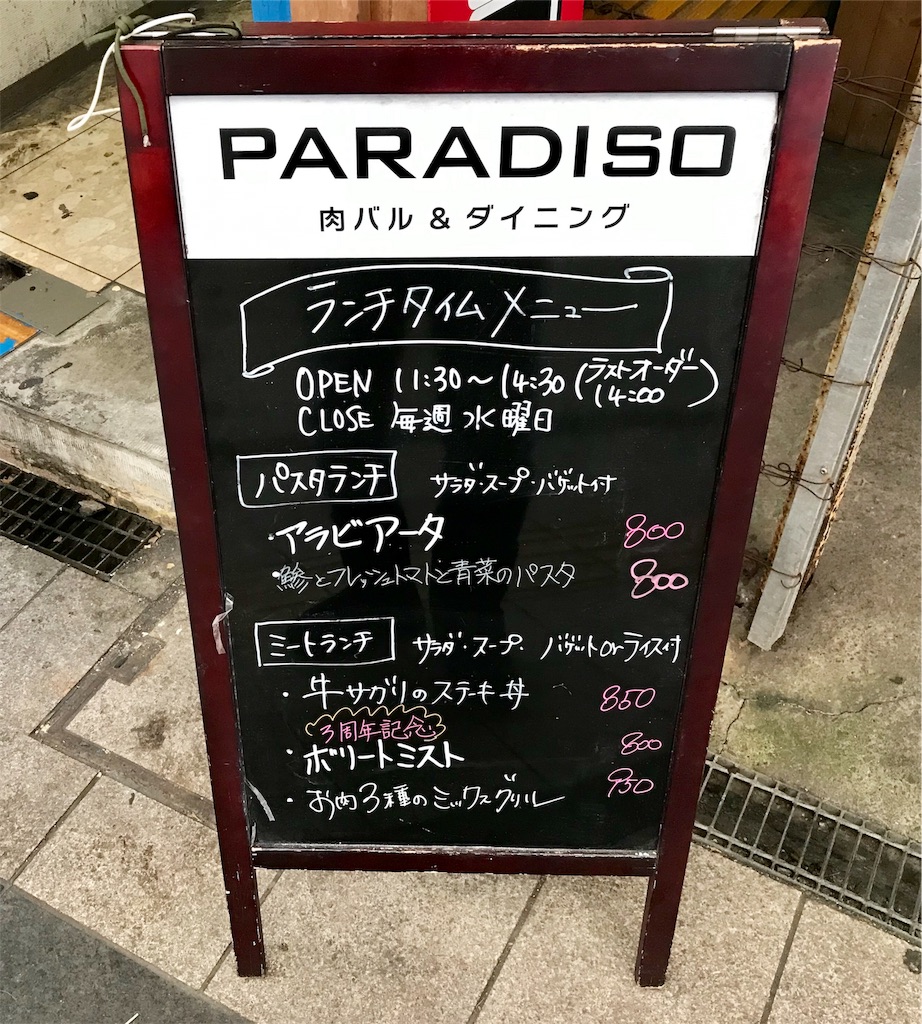 PARADISO
肉バル & ダイニング
ランチタイムメニュー
OPEN 11:30〜14:30 (ラストオーダー 14:00)
CLOSE 毎週水曜日
パスタランチ サラダ・スープ・バゲット付
・アラビアータ 800
・鯵とフレッシュトマトと青菜のパスタ 800
ミートランチ サラダ・スープ・バゲットorライス付
・牛サガリのステーキ丼 850
3周年記念
・ボリートミスト 800
・お肉3種のミックスグリル 950